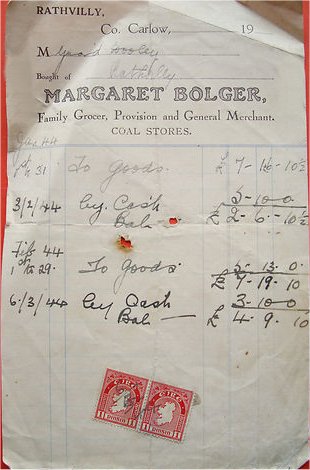 RATHVILLY,
Co. Carlow, 19
M Dooley
Bought of Rathvilly
MARGARET BOLGER,
Family Grocer, Provision and General Merchant.
COAL STORES.
Jan 44
31 To Goods £ 7-16-10½
3/2/44 By Cash 5-10-0
Bal £ 2-6-10½
Feb 44
1st 29. To Goods 5-13-0
£ 7-19-10
6/3/44 By Cash 3-10-0
Bal — £ 4-9-10
EIRE EIRE